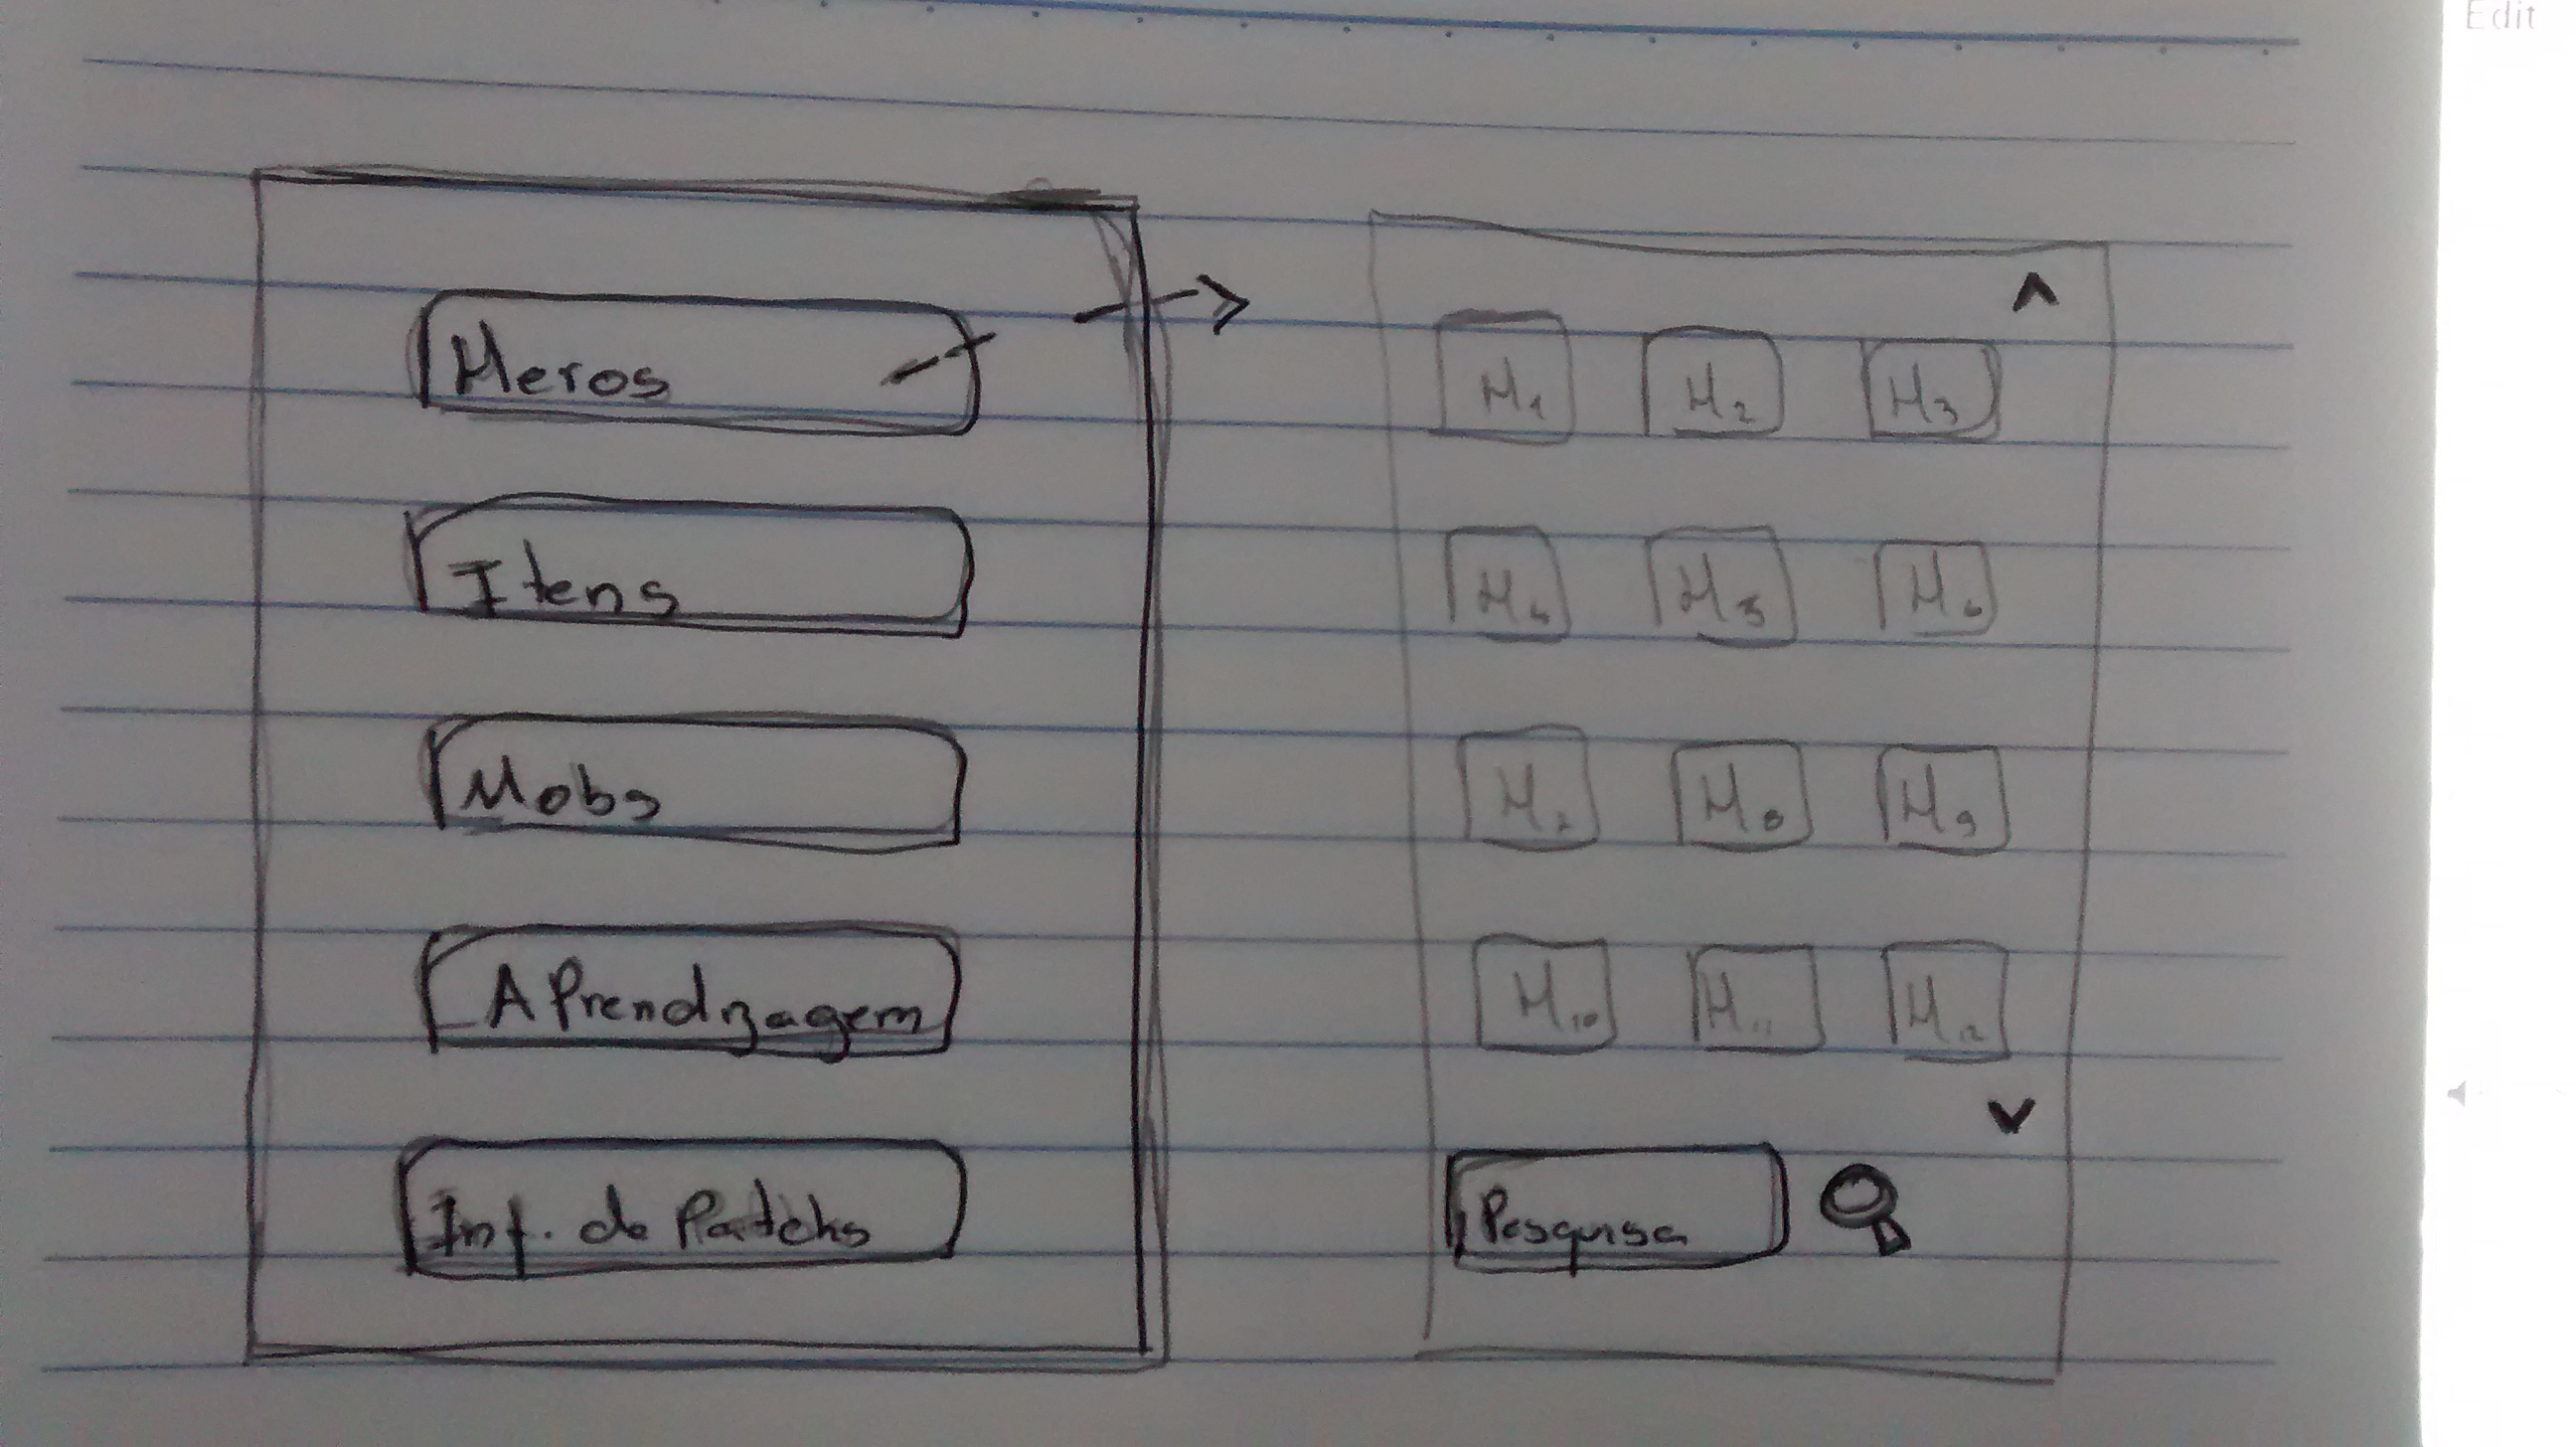 Edit
Heros
Itens
Mobs
APrendizagem
Inf. de Patchs
H1 H2 H3
H4 H5 H6
H7 H8 H9
H10 H11 H12
Pesquisa